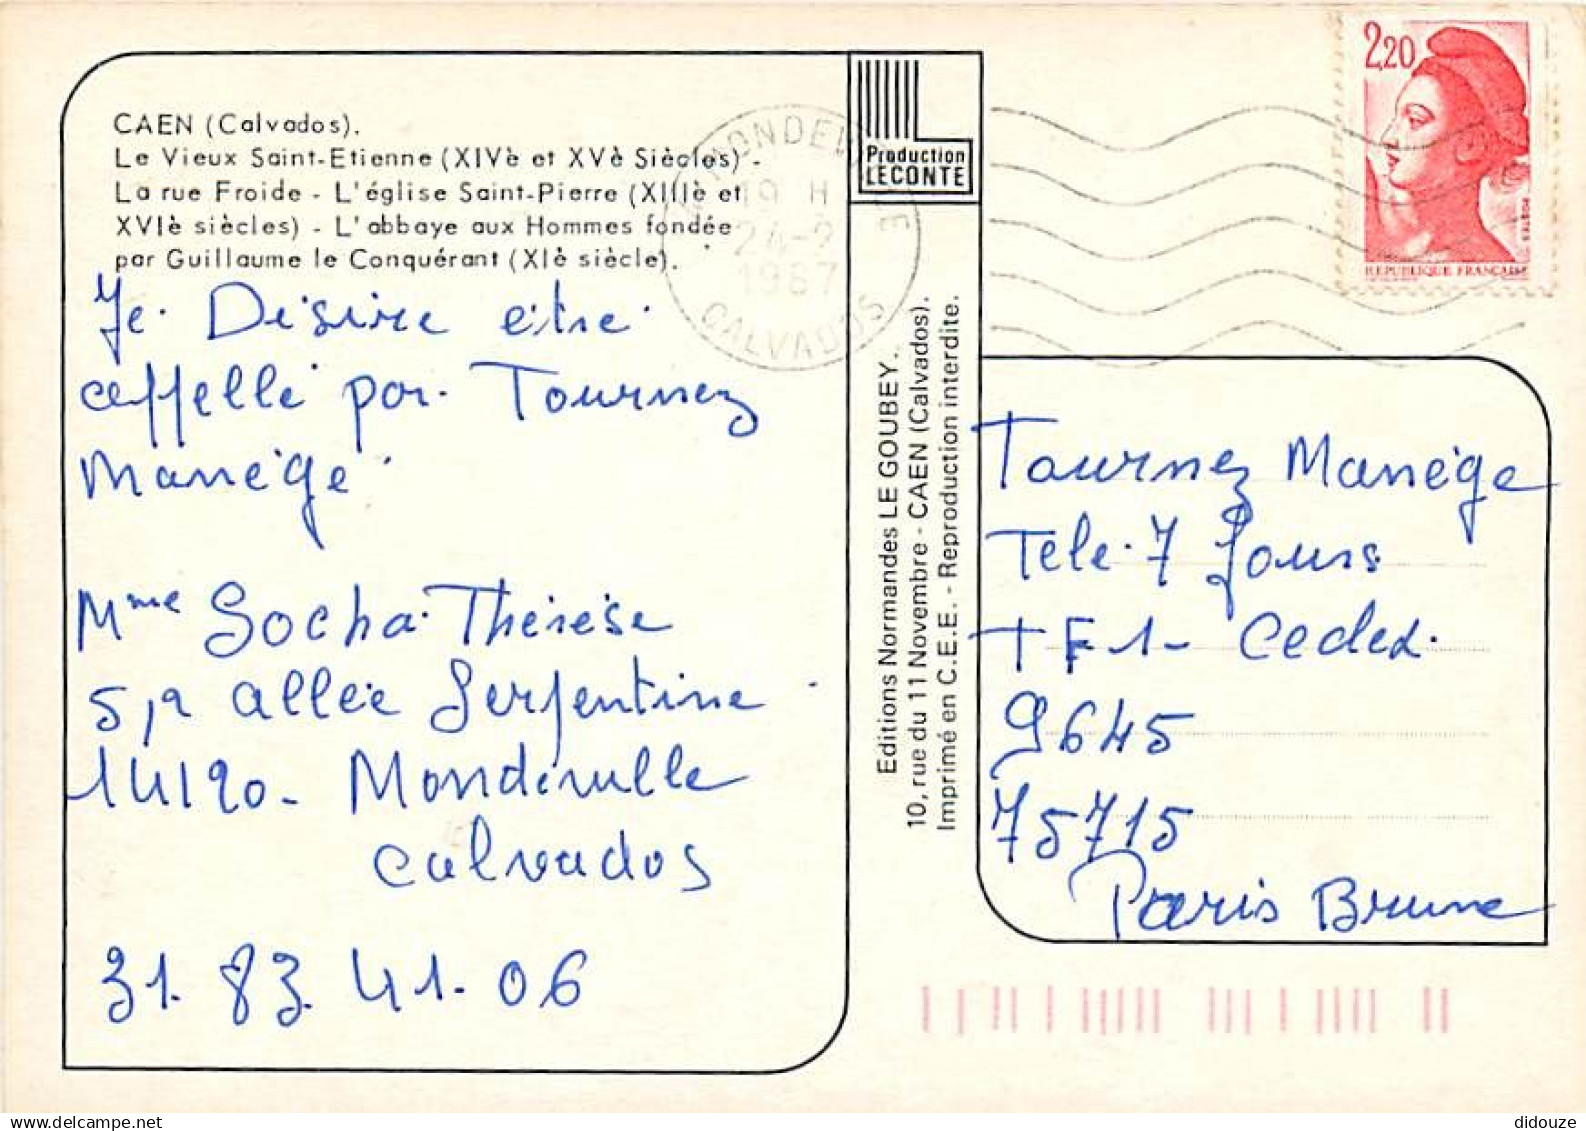 CAEN (Calvados).
Le Vieux Saint-Etienne (XIVè et XVè Siècles) -
La rue Froide - L'église Saint-Pierre (XIIIè et
XVIè siècles) - L'abbaye aux Hommes fondée
par Guillaume le Conquérant (XIè siècle).
Je Désire être
appellé par Tournez
Manège
Mme Socha Thérèse
5, allée Serpentine
14120 - Mondeville
Calvados
31. 83. 41. 06
Production
LECONTE
MONDEVILLE
19 H
24-2
1987
CALVADOS
Editions Normandes LE GOUBEY..
10, rue du 11 Novembre - CAEN (Calvados).
Imprimé en C.E.E. - Reproduction interdite.
2,20
POSTES
REPUBLIQUE FRANÇAISE
Tournez Manège
Télé 7 Jours
TF1 - Cedex
9645
75715
Paris Brune
didouze